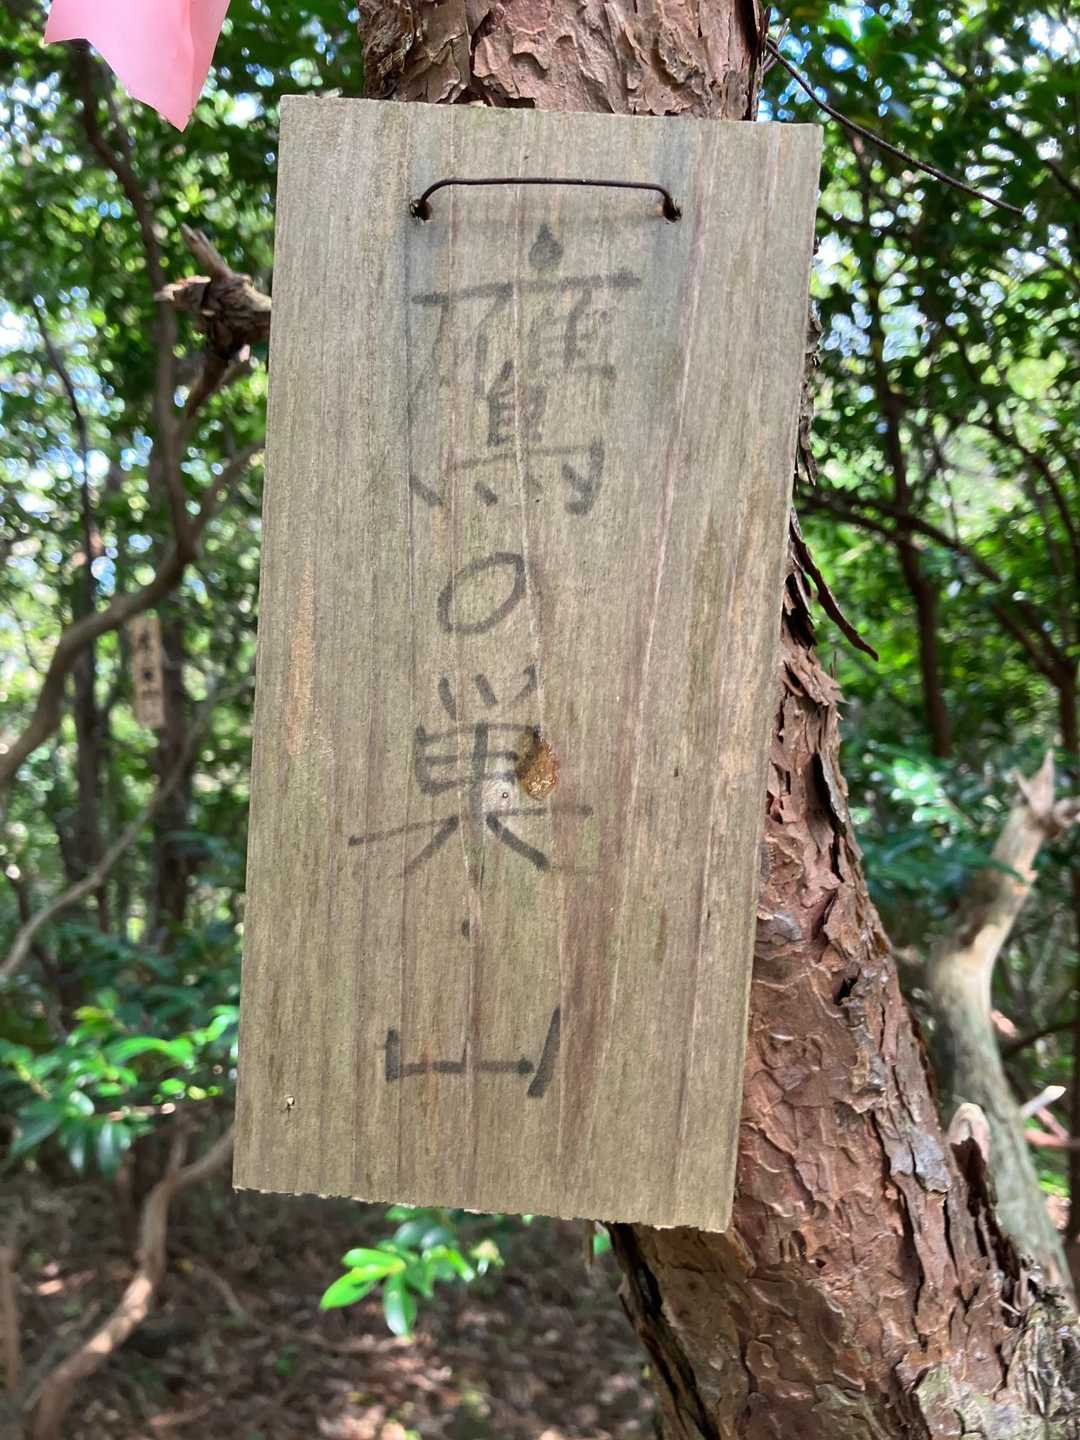 鷹の巣山